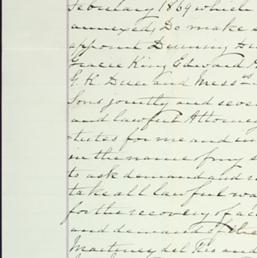 February 1869 which
annexed, Do make a
appoint Denning Du
Gracie King Edward
G. K. Duer and Mess
Sons jointly and seve
and lawful Attorney
tutes for me and in
in the name of my s
to ask demand and r
take all lawful wa
for the recovery of al
and demand of the
Martinez del Rio and